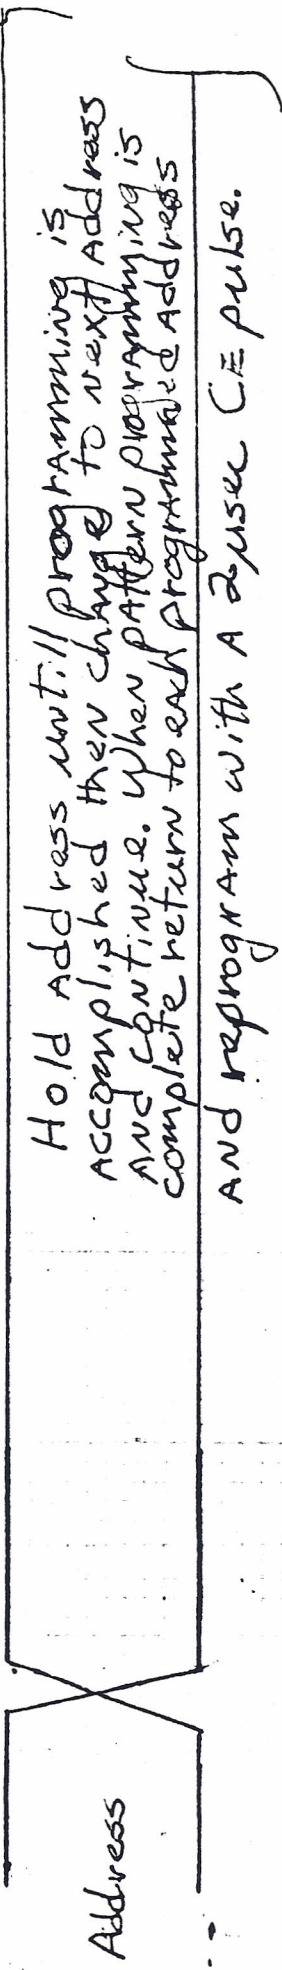 Address
Hold Address untill programming is
accomplished then change to next Address
and continue. When pattern programming is
complete return to each programmed Address
and reprogram with a 2µsec CE pulse.